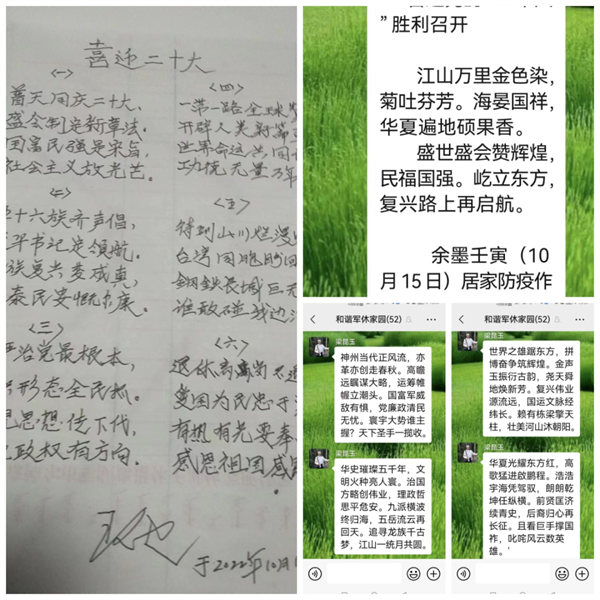 喜迎二十大
(一)
普天同庆二十大,
盛会制定新章法.
国富民强是宗旨,
社会主义放光芒.
(二)
十六族齐声倡,
平书记定领航.
族复兴变成真,
泰民安慨而康.
(三)
治党最根本,
形态全民抓.
思想传下代,
政权有方向.
(四)
一带一路全球
开辟人类新
世界命运共同
功德无量万年
(五)
待到山川烂漫
台湾同胞
钢铁长城巨
谁敢碰我边
(六)
退休离岗不
为民忠于
有热有光要奉
感恩祖国感
于2022年10月
”胜利召开
江山万里金色染，
菊吐芬芳。海晏国祥，
华夏遍地硕果香。
盛世盛会赞辉煌，
民福国强。屹立东方，
复兴路上再启航。
余墨壬寅（10
月15日）居家防疫作
和谐军休家园(52)
梁昆玉
神州当代正风流，亦
革亦创走春秋。高瞻
远瞩谋大略，运筹帷
幄立潮头。国富军威
敌有惧，党廉政清民
无忧。寰宇大势谁主
握？天下圣手一揽收。
华史璀璨五千年，文
明火种亮人寰。治国
方略创伟业，理政哲
思平危安。九派横波
终归海，五岳流云再
回天。追寻龙族千古
梦，江山一统月共圆。
和谐军休家园(52)
梁昆玉
世界之雄踞东方，拼
博奋争筑辉煌。金声
玉振衍古韵，尧天舜
地焕新芳。复兴伟业
源流远，国运文脉经
纬长。赖有栋梁擎天
柱，壮美河山沐朝阳。
华夏光耀东方红，高
歌猛进启鹏程。浩浩
宇海凭驾驭，朗朗乾
坤任纵横。前贤匡济
续青史，后裔归心再
长征。且看巨手撑国
祚，叱咤风云数英
雄。'